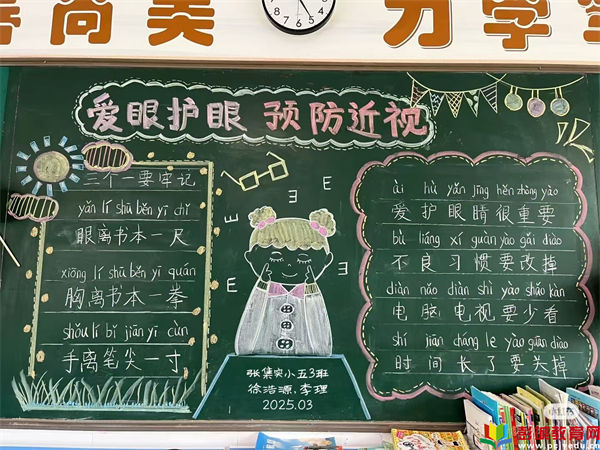 尚美
力学
爱眼护眼 预防近视
三个一要牢记
yǎn lí shū běn yī chǐ
眼离书本一尺
xiōng lí shū běn yī quán
胸离书本一拳
shǒu lí bǐ jiān yī cùn
手离笔尖一寸
E
E
E
E
E
E
张集实小五3班
徐浩源,李理
2025.03
ài hù yǎn jīng hěn zhòng yào
爱护眼睛很重要
bù liáng xí guàn yào gǎi diào
不良习惯要改掉
diàn nǎo diàn shì yào shǎo kàn
电脑电视要少看
shí jiān cháng le yào guān diào
时间长了要关掉
彭城教育网
pcjyedu.cn